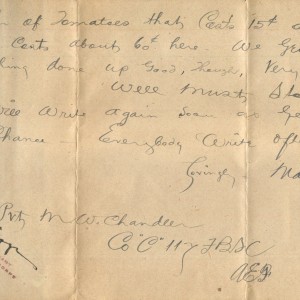 of Tomatoes that Costs 15¢ a
Costs about 60¢ here. We Ge
ling done up Good, though, Very
Well Must Slo
Write again Soon as Ge
Chance - Everybody Write ofte
Lovingly - Ma
Pvt M. W. Chandler
Co "C" 117 F B S C
A E F